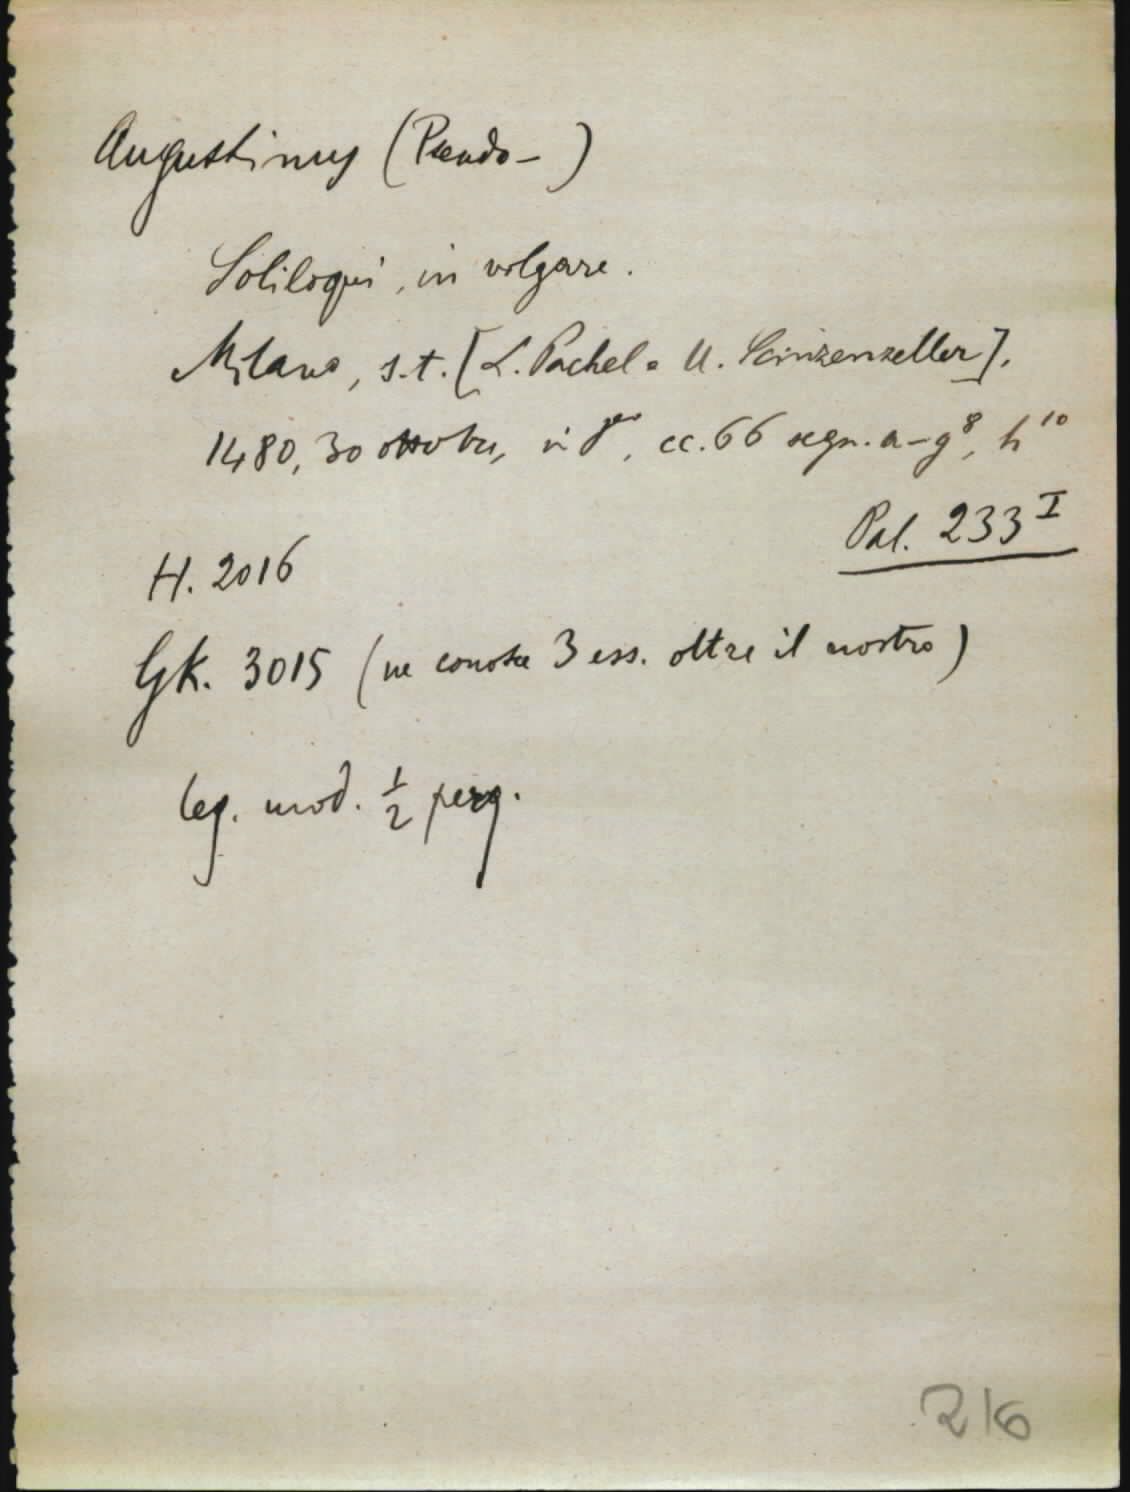 Augustinus (Pseudo-)
Soliloqui, in volgare.
Milano, s.t. [L. Pachel e U. Scinzenzeller],
1480, 30 ottobre, in 8°, cc. 66 segn. a-g⁸, h¹⁰
Pal. 233 I
H. 2016
GK. 3015 (ne conosce 3 ess. oltre il nostro)
leg. mod. ½ perg.
216